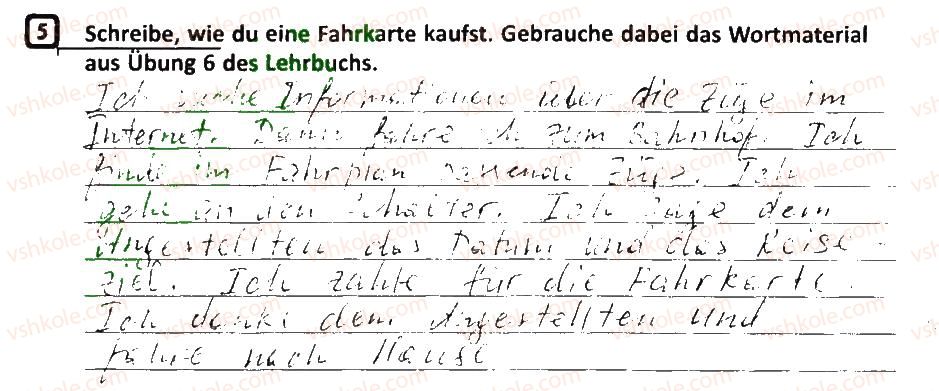 5 Schreibe, wie du eine Fahrkarte kaufst. Gebrauche dabei das Wortmaterial
aus Übung 6 des Lehrbuchs.
Ich suche Informationen über die Züge im
Internet. Dann fahre ich zum Bahnhof. Ich
finde im Fahrplan passende Züge. Ich
gehe an den Schalter. Ich sage dem
Angestellten das Datum und das Reise-
ziel. Ich zahle für die Fahrkarte.
Ich danke dem Angestellten und
fahre nach Hause